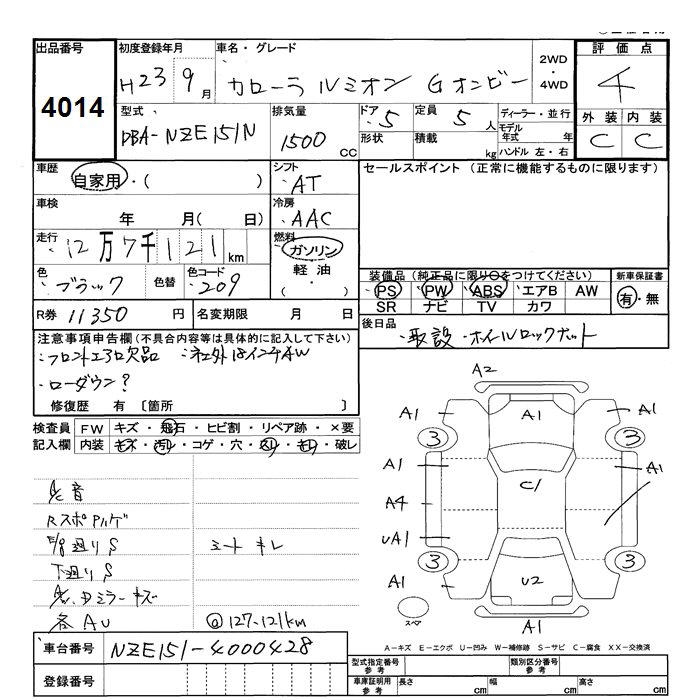 出品番号 初度登録年月 車名・グレード 2WD・4WD 評価点
4014 H23 9月 カローラ ルミオン Gオンビー 4
型式 排気量 ドア 5 定員 5人 ディーラー・並行 外装 内装
DBA-NZE151N 1500 CC 形状 積載 kg モデル年式 年 C C
ハンドル 左・右
車歴 自家用・( ) シフト AT セールスポイント (正常に機能するものに限ります)
車検 年 月( 日) 冷房 AAC
走行 12万7千121km 燃料 ガソリン 軽油 ( ・ )
色 ブラック 色替 色コード 209 装備品 (純正品に限り○をつけてください) 新車保証書
PS PW ABS エアB AW 有・無
SR ナビ TV カワ
R券 11350円 名変期限 月 日 後日品
・取説・ホイールロックナット
注意事項申告欄 (不具合内容等は具体的に記入して下さい)
・フロントエアロ欠品 ・社外18インチAW
・ローダウン?
修復歴 有 〔箇所 〕
検査員 FW キズ・飛石・ヒビ割・リペア跡・×要
記入欄 内装 キズ・汚レ・コゲ・穴・スレ・モレ・破レ
A2
A1 A1 A1
3 3
A1 A1
C1
A4
UA1
3 3
A1 U2
スペア A1
A/C 音
下廻りS
シート キレ
各AU
@127-121km
A-キズ E-エクボ U-凹み W-補修跡 S-サビ C-腐食 XX-交換済
車台番号 NZE151-4000428
登録番号
型式指定番号 参考 類別区分番号 参考
車庫証明用 参考 長さ cm 幅 cm 高さ cm